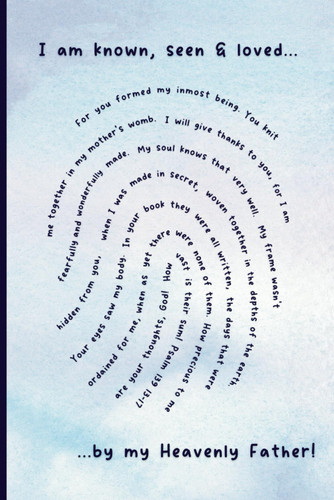 I am known, seen & loved...
For you formed my inmost being. You knit
me together in my mother's womb. I will give thanks to you, for I am
fearfully and wonderfully made. My soul knows that very well. My frame wasn't
hidden from you, when I was made in secret, woven together in the depths of the earth.
Your eyes saw my body. In your book they were all written, the days that were
ordained for me, when as yet there were none of them. How precious to me
are your thoughts, God! How vast is their sum! Psalm 139 13-17
...by my Heavenly Father!